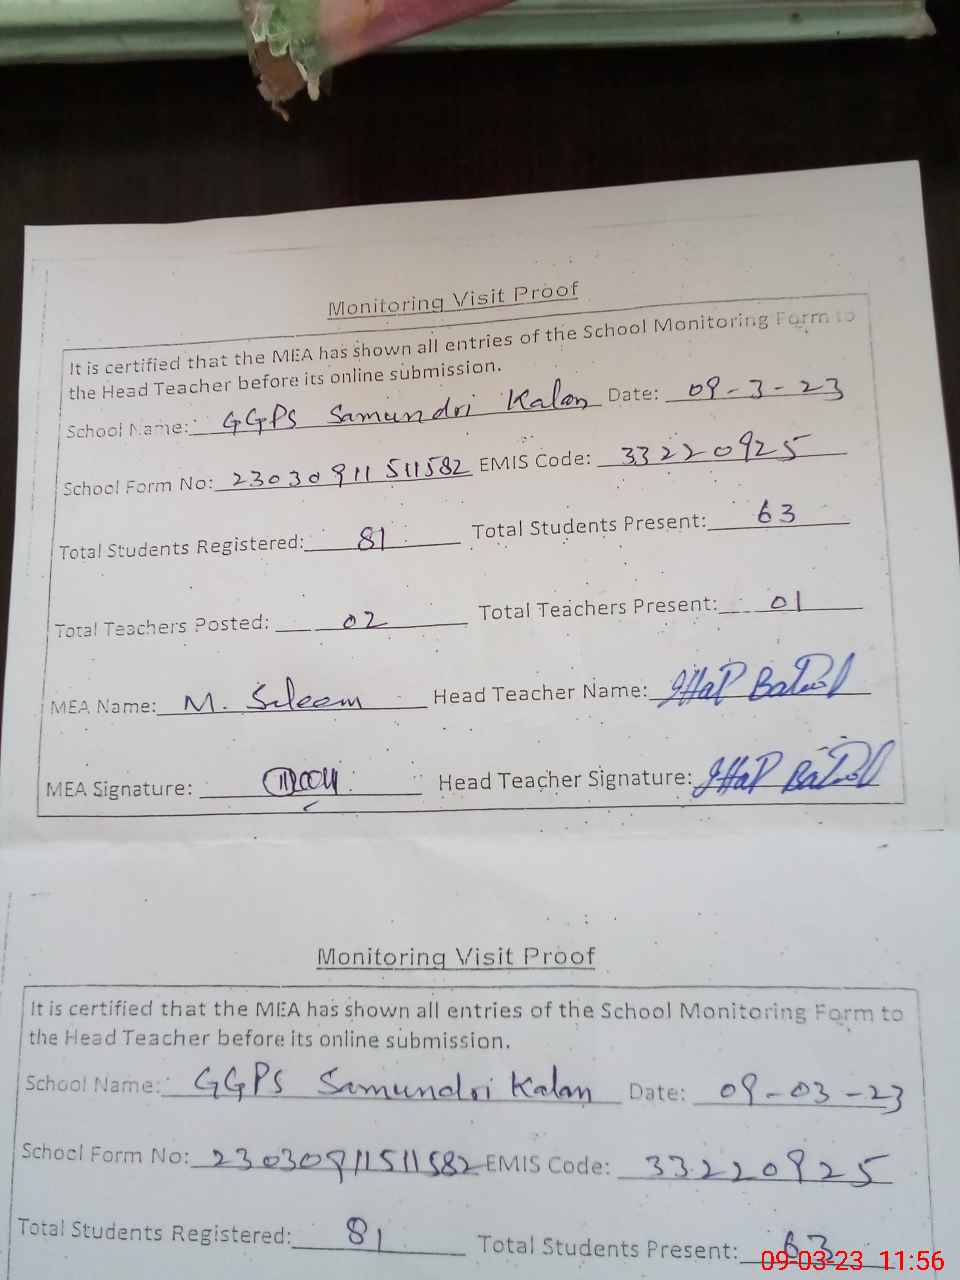 Monitoring Visit Proof
It is certified that the MEA has shown all entries of the School Monitoring Form to
the Head Teacher before its online submission.
School Name: GGPS Samundri Kalan Date: 09-3-23
School Form No: 23030911511582 EMIS Code: 33220925
Total Students Registered: 81 Total Students Present: 63
Total Teachers Posted: 02 Total Teachers Present: 01
MEA Name: M. Saleem Head Teacher Name: Batool
MEA Signature: Head Teacher Signature: Batool
Monitoring Visit Proof
It is certified that the MEA has shown all entries of the School Monitoring Form to
the Head Teacher before its online submission.
School Name: GGPS Samundri Kalan Date: 09-03-23
School Form No: 23030911511582 EMIS Code: 33220925
Total Students Registered: 81 Total Students Present: 63
09-03-23 11:56